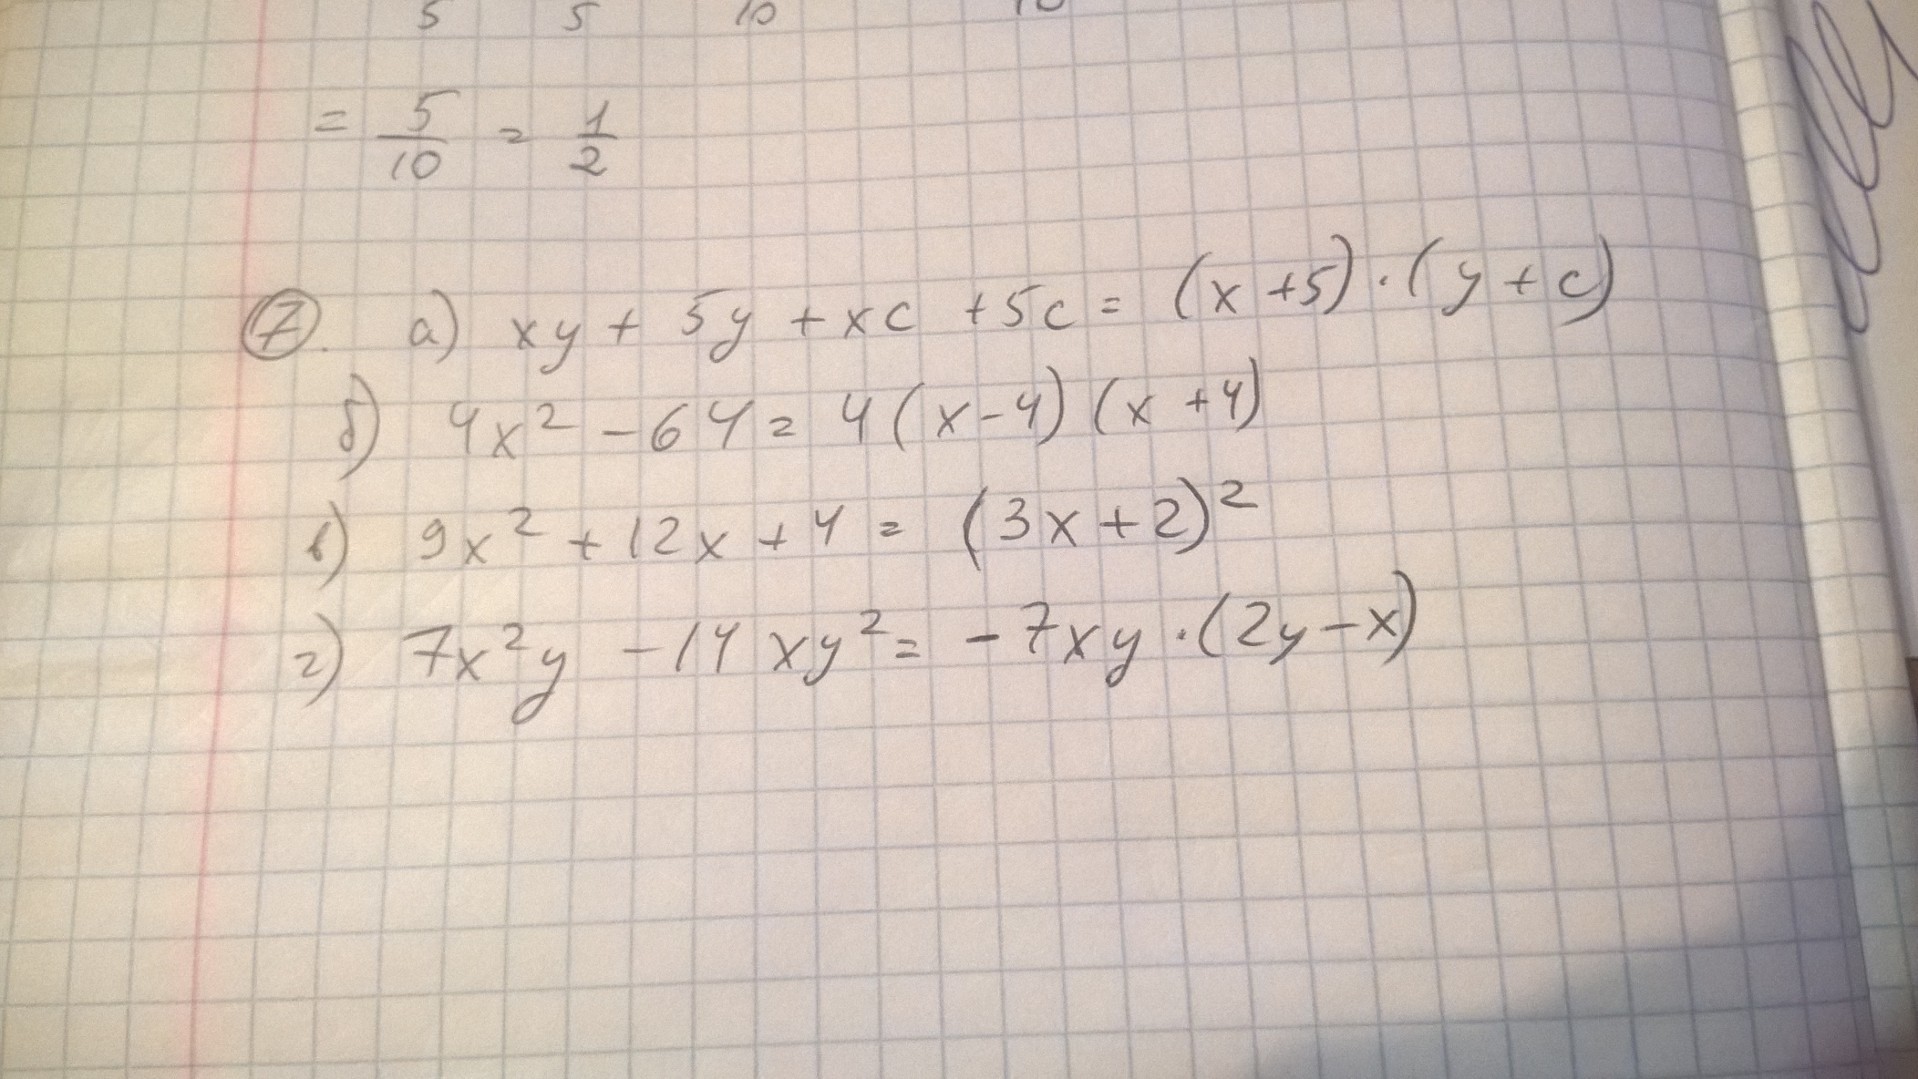 5 5 10
= 5/10 = 1/2
7. а) xy + 5y + xc + 5c = (x + 5) · (y + c)
б) 4x² - 64 = 4 (x - 4) (x + 4)
в) 9x² + 12x + 4 = (3x + 2)²
г) 7x²y - 14xy² = - 7xy · (2y - x)